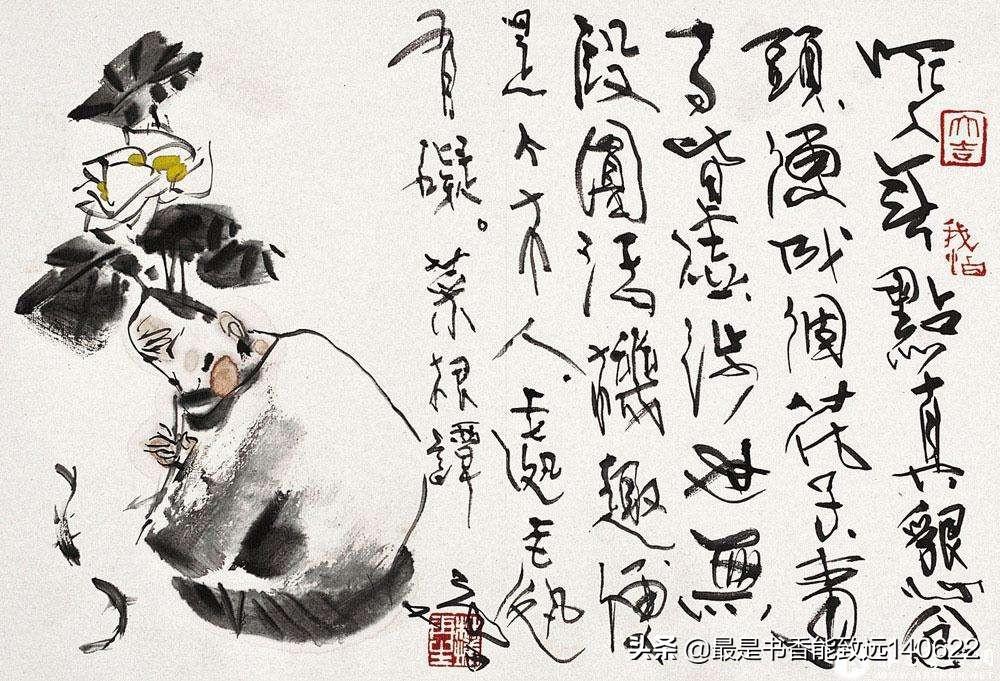 作人無點真懇念
頭便成個花子事
事皆虛涉世無
段圓活機趣便
是个木人處處
有礙。菜根譚
大吉
我怕
头条 @最是书香能致远140622